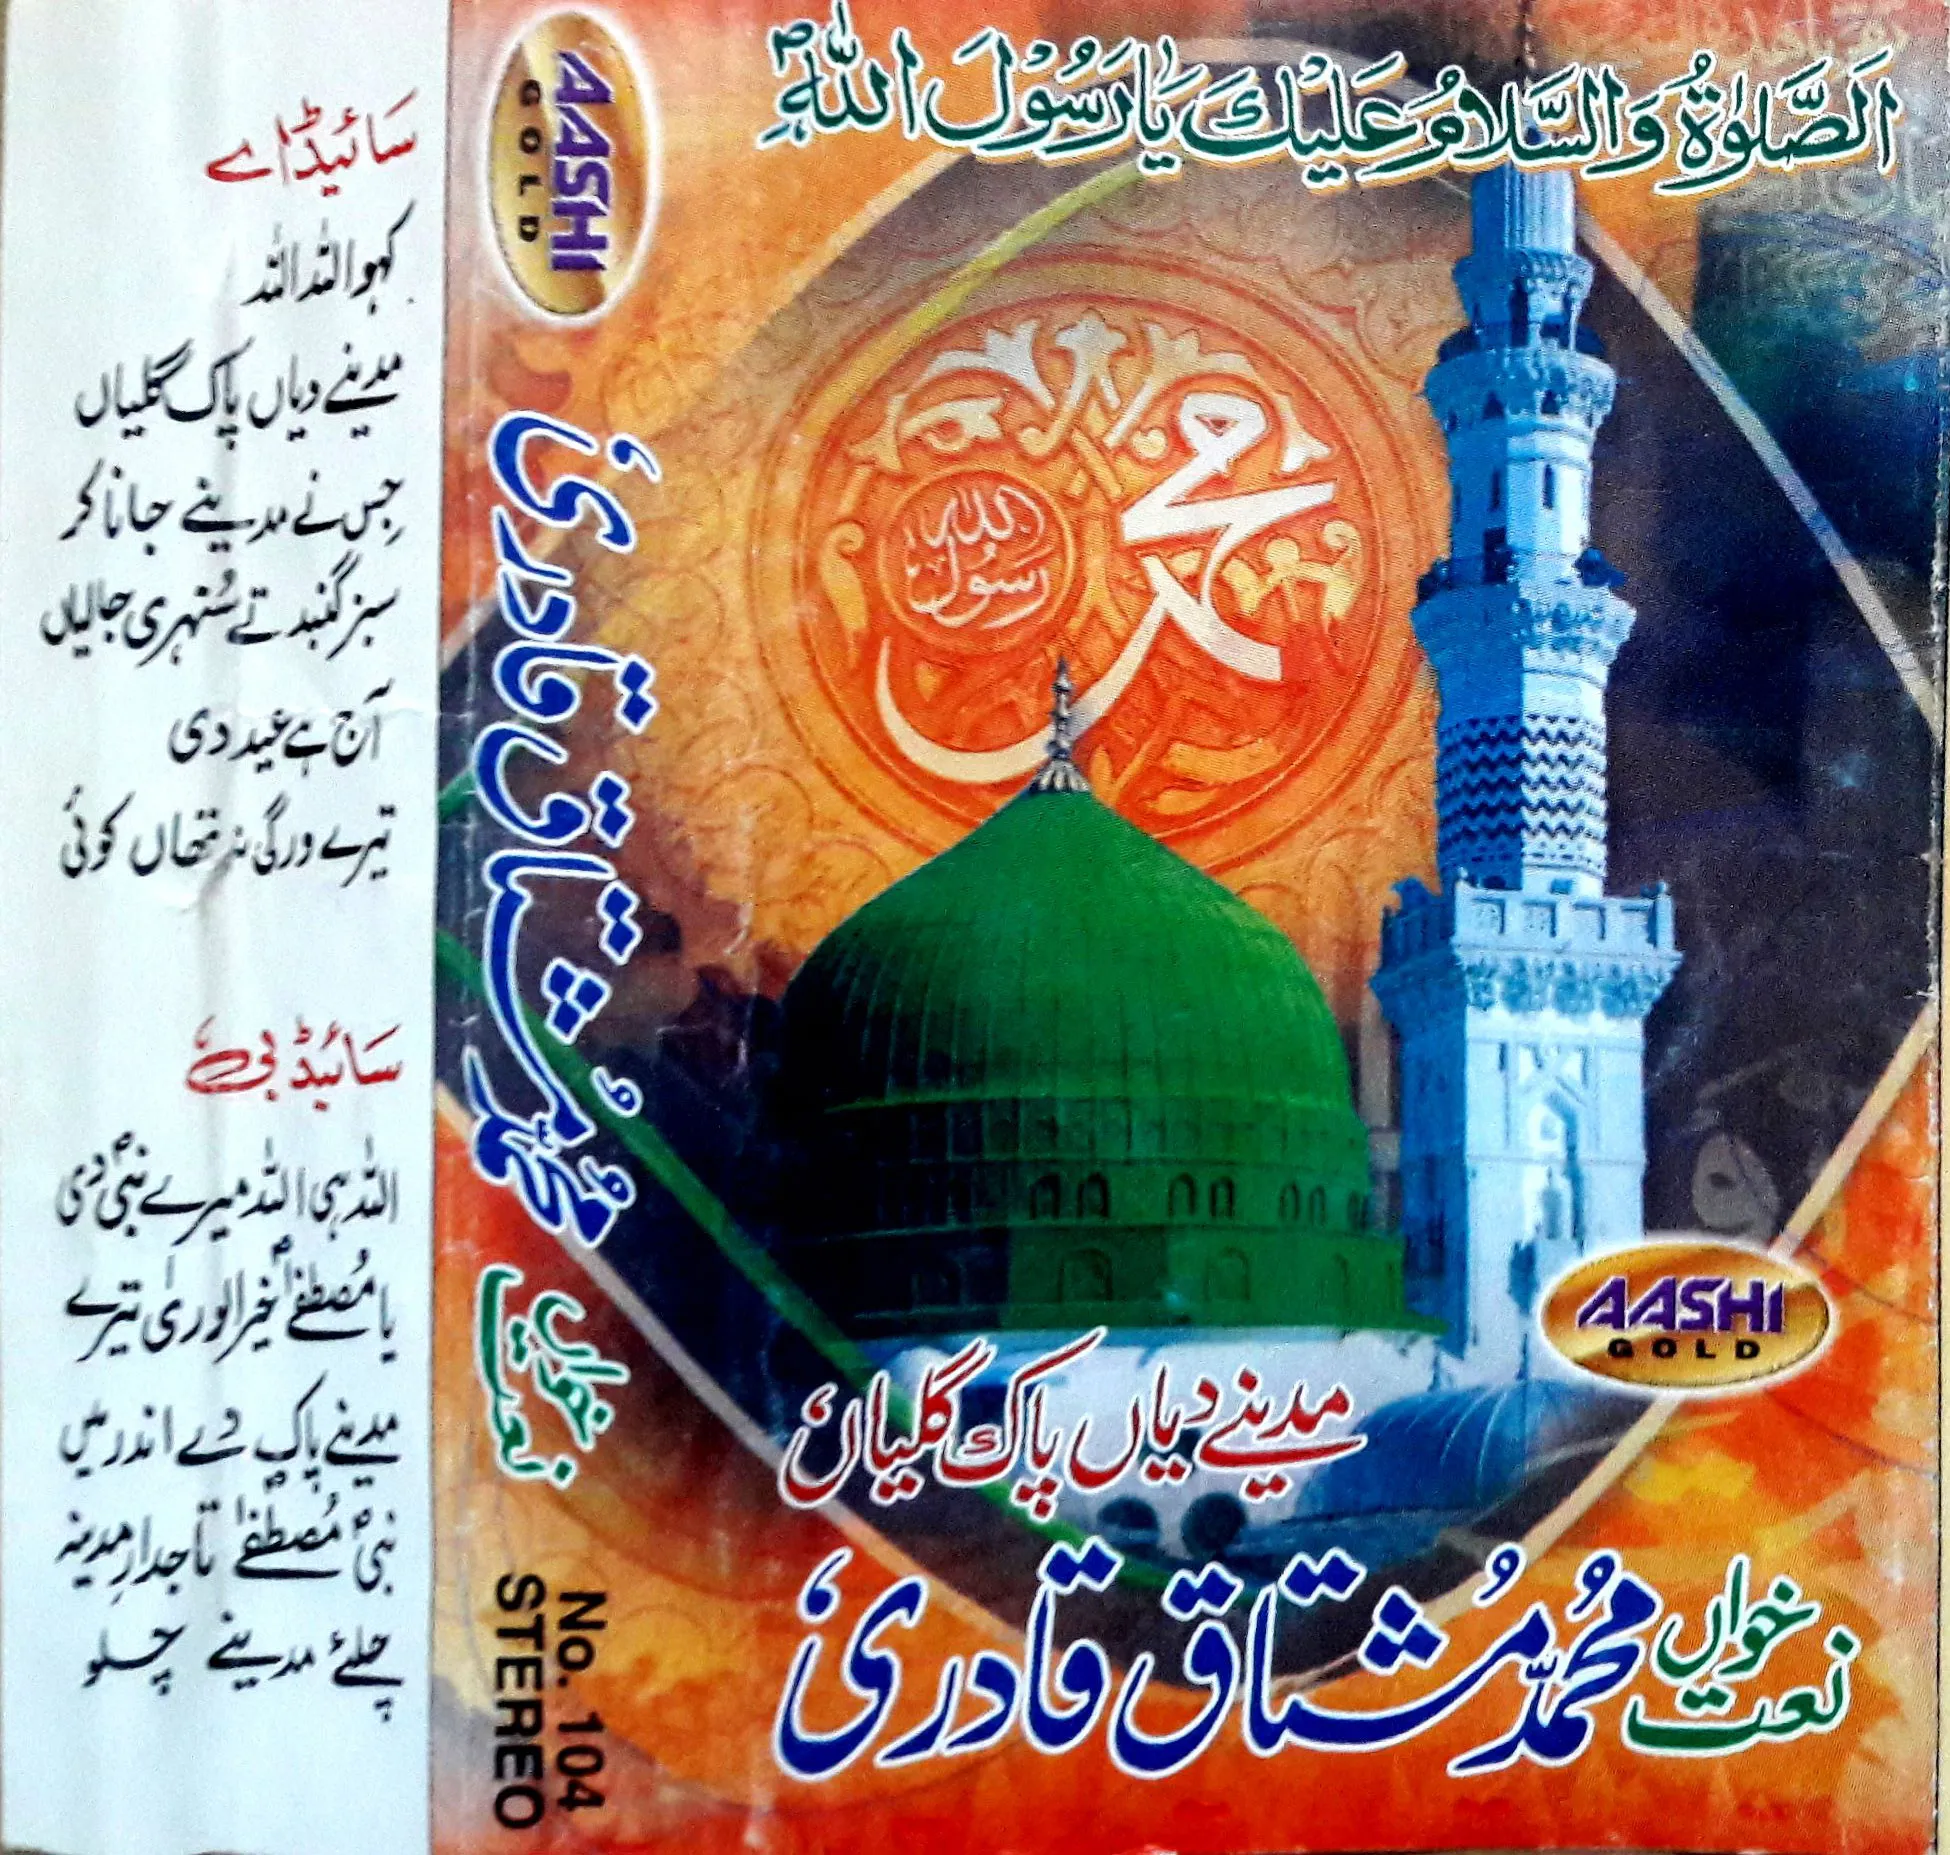 اَلصَّلٰوۃُ وَالسَّلَامُ عَلَیْكَ یَا رَسُوْلَ اللّٰہِ ؐ
محمد
رسول اللہ
AASHI
GOLD
مدینے دیاں پاک گلیاں
نعت خواں
محمد مشتاق قادری
AASHI
GOLD
محمد مشتاق قادری
نعت خواں
No. 104
STEREO
سائیڈ اے
کہو اللہ اللہ
مدینے دیاں پاک گلیاں
جس نے مدینے جانا کر
سبز گنبد تے سُنہری جالیاں
آج ہے عید دی
تیرے ورگی نہ تھاں کوئی
سائیڈ بی
اللہ ہی اللہ میرے نبیؐ دی
یا مُصطفےٰؐ خیر الوریٰ تیرے
مدینے پاک دے اندر میں
نبیؐ مُصطفےٰؐ تاجدارِ مدینہ
چلئے مدینے چلو